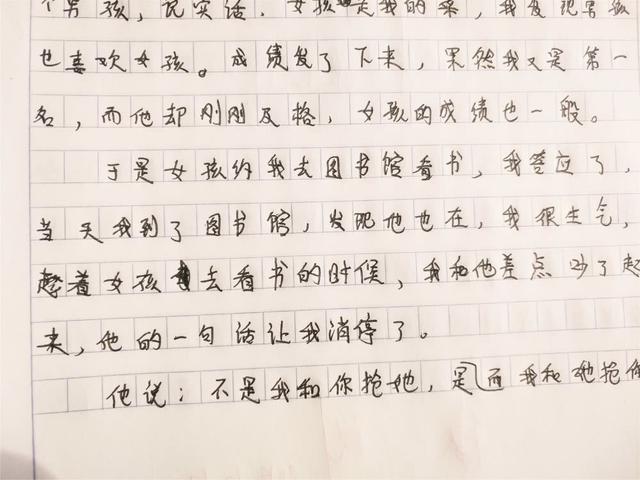 个男孩，说实话，女孩是我的菜，我发现男孩
也喜欢女孩。成绩发了下来，果然我又是第一
名，而他却刚刚及格，女孩的成绩也一般。
于是女孩约我去图书馆看书，我答应了，
当天我到了图书馆，发现他也在，我很生气，
趁着女孩去看书的时候，我和他差点吵了起
来，他的一句话让我消停了。
他说：不是我和你抢她，是而我和她抢你